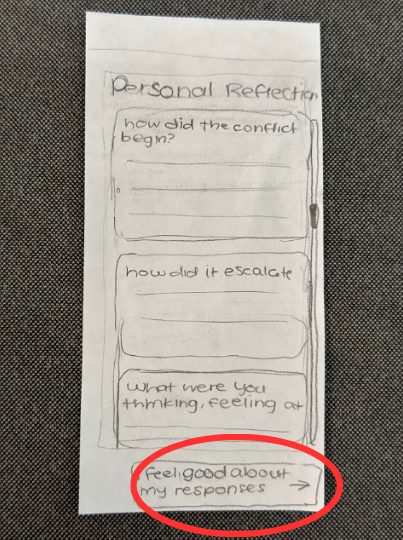 Personal Reflection
how did the conflict
begin?
how did it escalate
What were you
thinking, feeling at
feel good about
my responses →